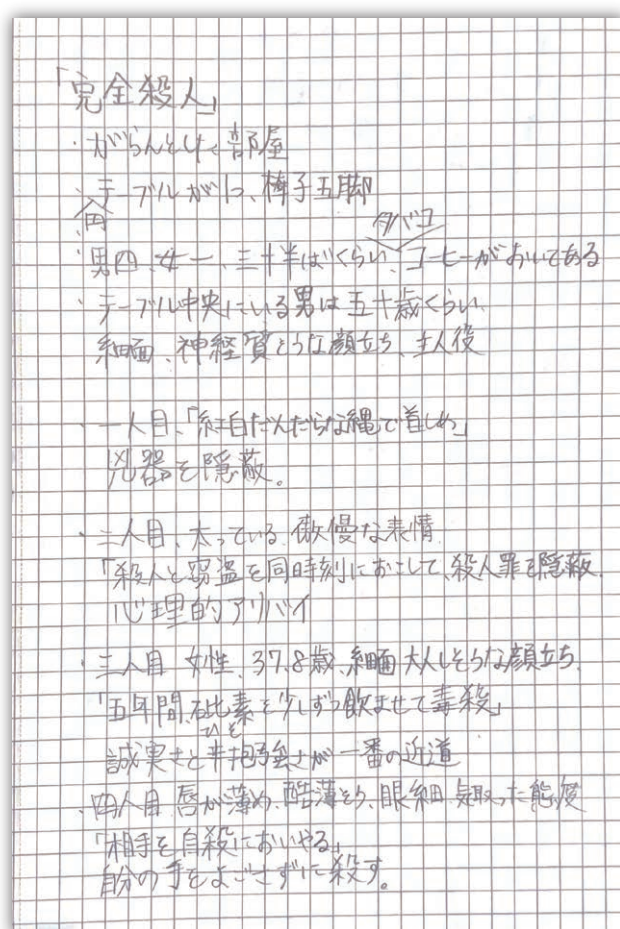 「完全殺人」
・がらんとした部屋
・テーブルが1つ、椅子五脚
円
タバコ
・男四、女一、三十半ばくらい、コーヒーがおいてある
・テーブル中央にいる男は五十歳くらい
細面、神経質そうな顔立ち、主人役
・一人目、「紅白だんだらな縄で首しめ」
兇器を隠蔽。
・二人目、太っている、傲慢な表情
「殺人と窃盗を同時刻におこして、殺人罪を隠蔽
心理的アリバイ
・三人目 女性、37.8歳、細面 大人しそうな顔立ち、
「五年間、砒素を少しずつ飲ませて毒殺」
ひそ
誠実さと辛抱強さが一番の近道
・四人目 唇が薄め、酷薄そう、眼細 気取った態度
「相手を自殺においやる」
自分の手をよごさずに殺す。